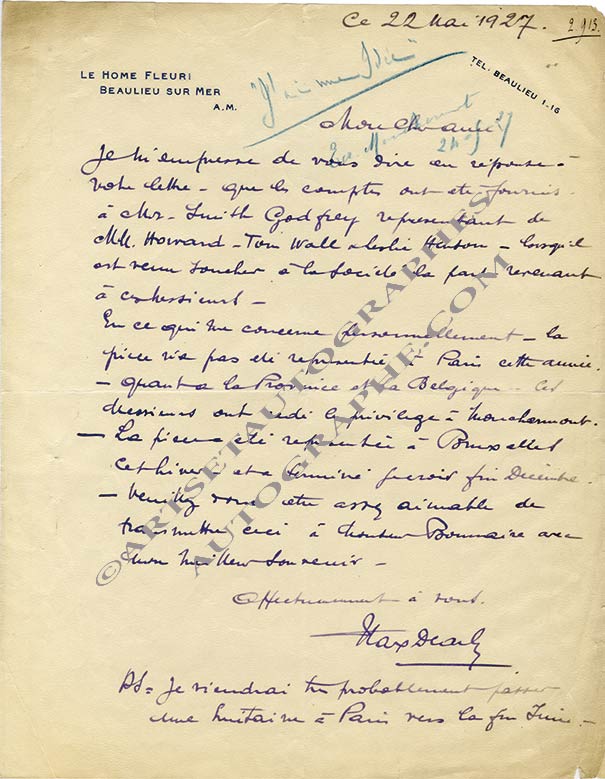 Ce 22 Mai 1927.
2.913.
LE HOME FLEURI
BEAULIEU SUR MER
A.M.
TEL. BEAULIEU 1-16
J'ai une Idée
Mon cher ami
Je m'empresse de vous dire en réponse à
votre lettre - que les comptes ont été fournis
à Mr. Smith Godfrey représentant de
MM. Howard - Tom Wall & Leslie Henson - lorsqu'il
est venu toucher à la Société la part revenant
à ces messieurs -
En ce qui me concerne personnellement - la
pièce n'a pas été représentée à Paris cette année.
- quant à la Province et la Belgique - ces
messieurs ont cédé le privilège à Moncharmont.
- La pièce a été représentée à Bruxelles
cet hiver et a terminé je crois fin Décembre.
- Veuillez vous être assez aimable de
transmettre ceci à Monsieur Bonnaire avec
mon meilleur souvenir -
Affectueusement à vous.
Max Dearly
PS = Je viendrai très probablement passer
une huitaine à Paris vers la fin Juin -
©ARTSETAUTOGRAPHES
AUTOGRAPHE.COM